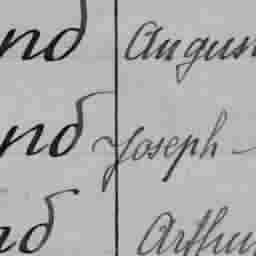 nd Augus
nd Joseph
nd Arthu